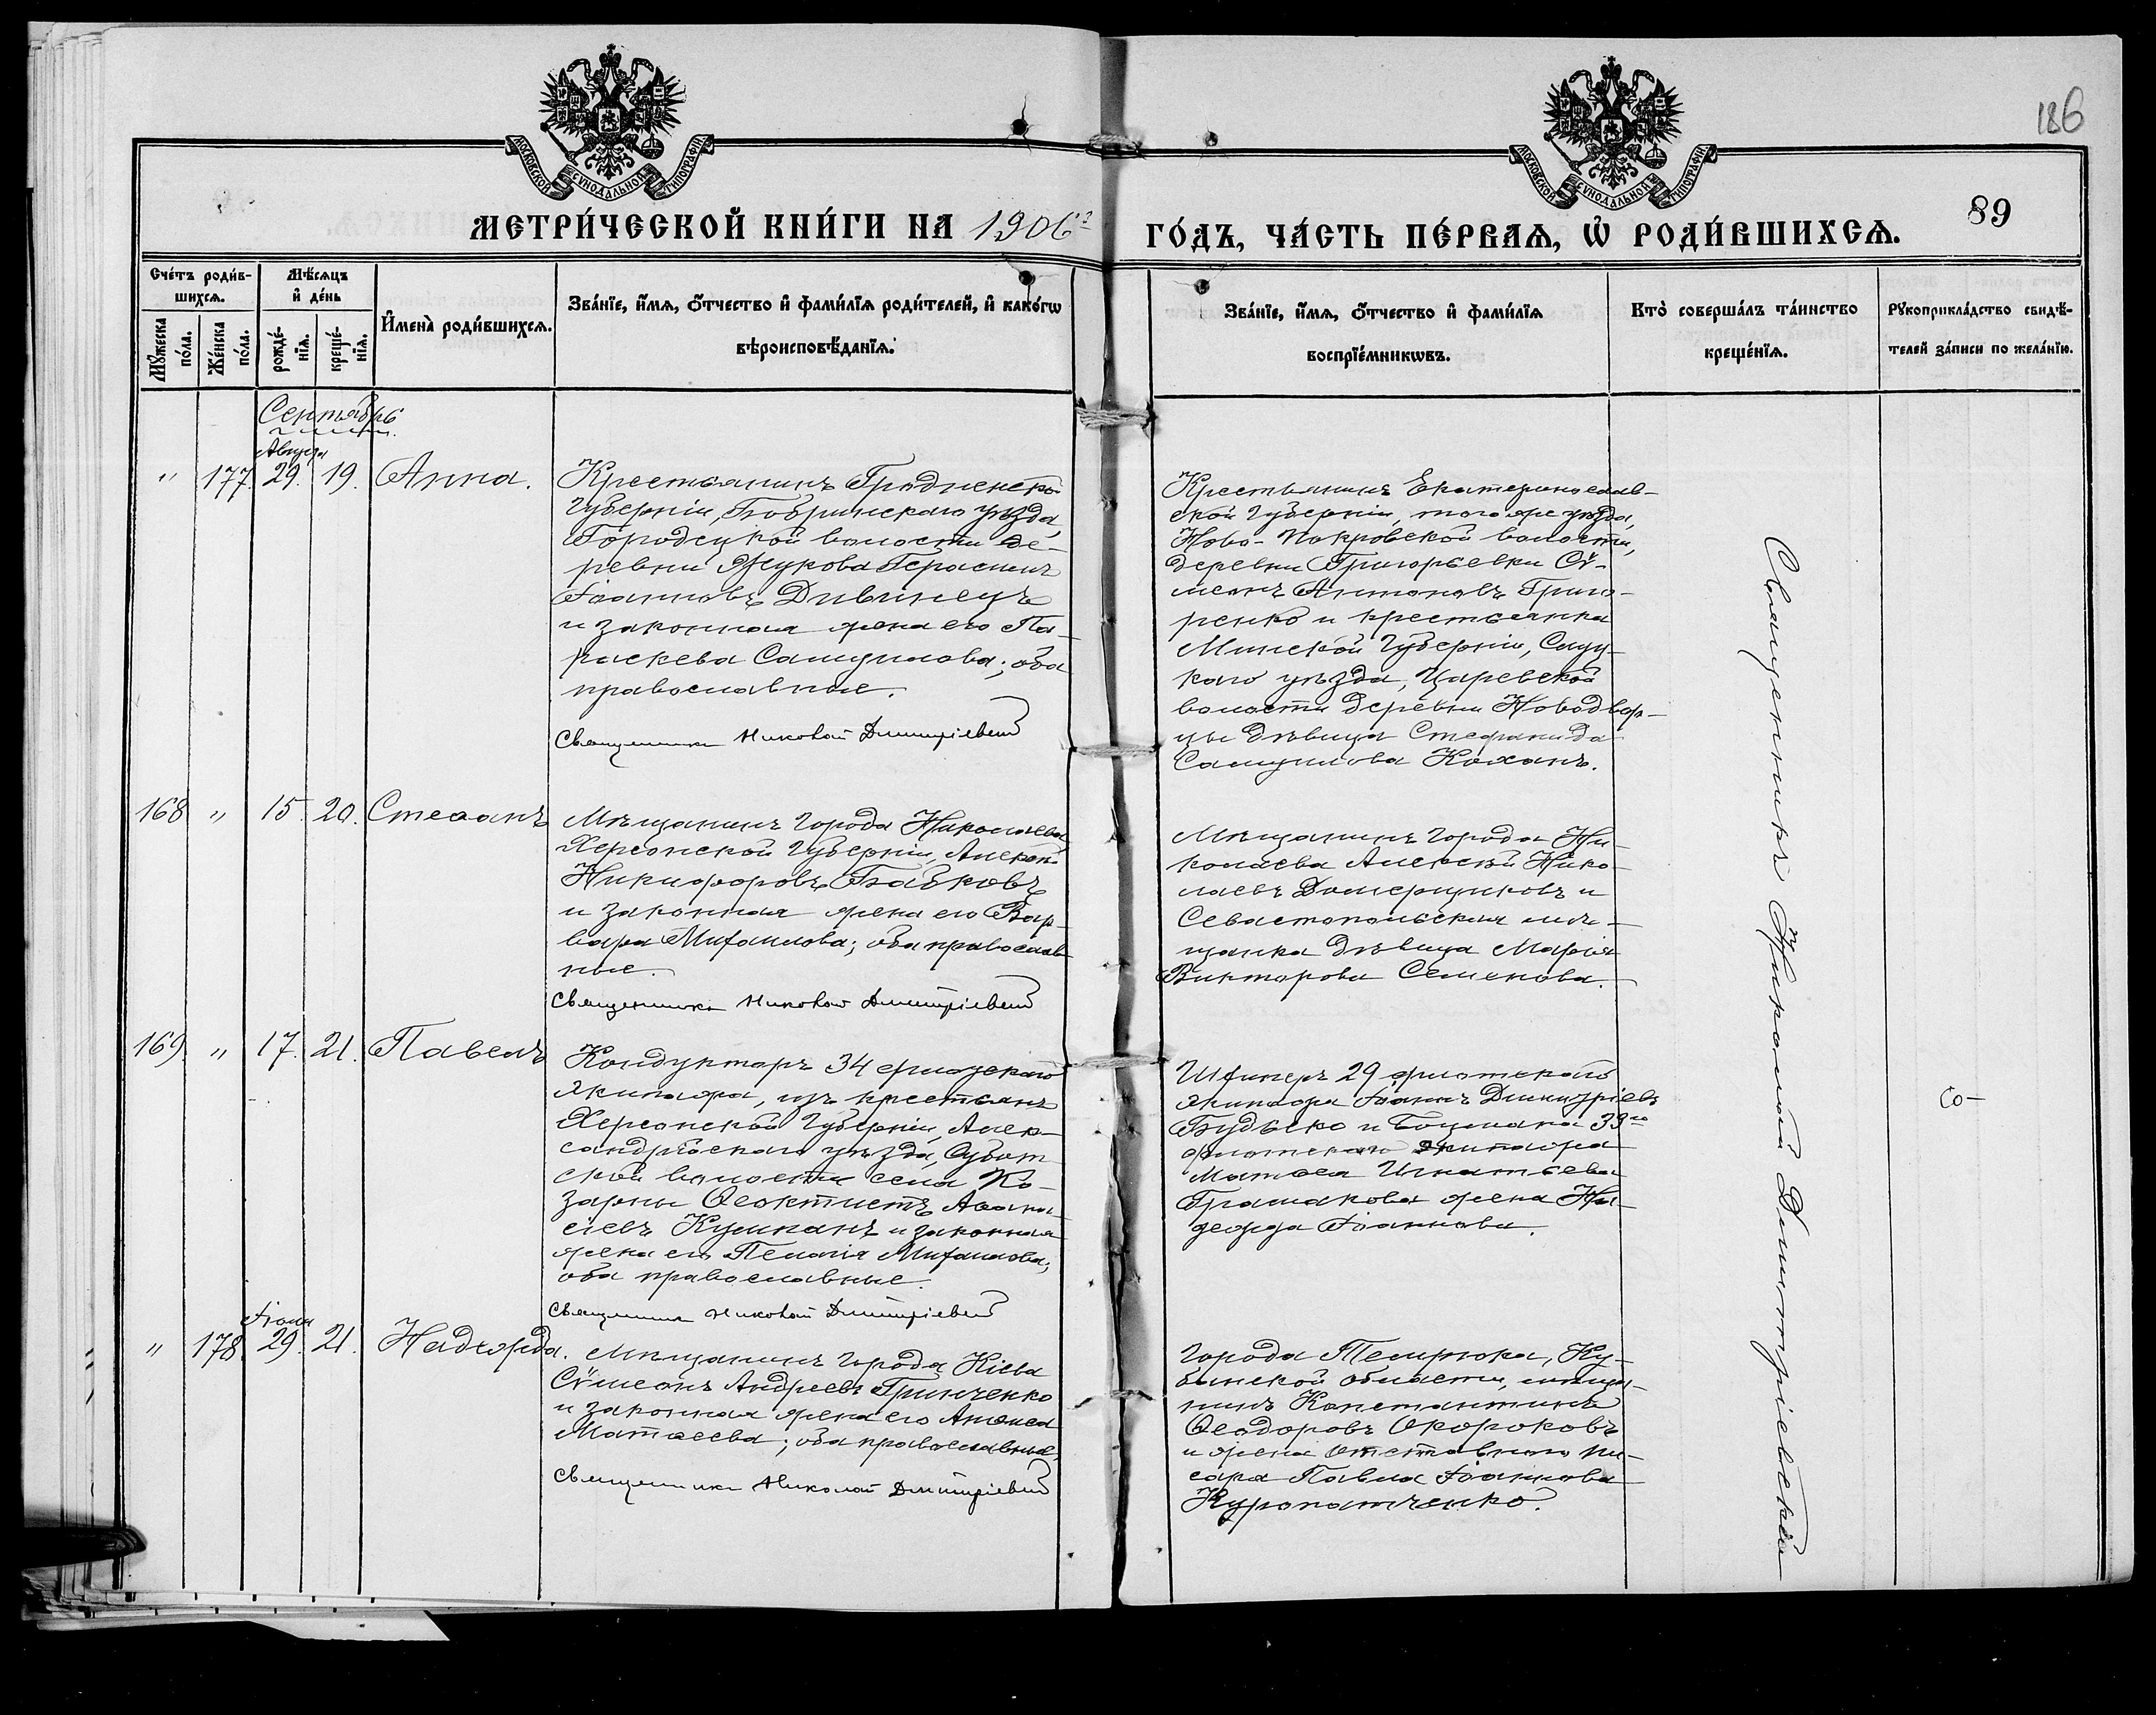 186
89
МОСКОВСКОЙ СѴНОДАЛЬНОЙ ТИПОГРАФІИ
МОСКОВСКОЙ СѴНОДАЛЬНОЙ ТИПОГРАФІИ
МЕТРИ́ЧЕСКОЙ КНИ́ГИ НА 1906й
ГО́ДЪ, ЧА́СТЬ ПЕ́РВАЯ, Ѡ҆ РОДИ́ВШИХСѦ.
Сче́тъ роди́в-
шихсѧ.
Мꙋ́жеска по́ла.
Же́нска по́ла.
Мѣ́сѧцъ
и҆ де́нь
рожде́-
нїѧ.
креще́-
нїѧ.
И҆мена̀ роди́вшихсѧ.
Зва́нїе, и҆́мѧ, ѻ҆́тчество и҆ фами́лїѧ роди́телей, и҆ како́гѡ
вѣроисповѣ́данїѧ.
Зва́нїе, и҆́мѧ, ѻ҆́тчество и҆ фами́лїѧ
воспрїе́мникѡвъ.
Кто̀ соверша́лъ та́инство
креще́нїѧ.
Рꙋкоприкла́дство свидѣ́-
телей за́писи по жела́нїю.
Сентябрь
Августа
" 177. 29. 19. Анна.
Крестьянинъ Гродненской
Губерніи, Кобринскаго уѣзда,
Городецкой волости де-
ревни Жукова Герасимъ
Іоанновъ Дивинецъ
и законная жена его Па-
раскева Самуилова; оба
православные.
Священникъ Николай Димитріевскій
Крестьянинъ Екатеринослав-
ской Губерніи, того же уѣзда,
Ново-Покровской волости,
деревни Григорьевки Сѵ-
меонъ Антоновъ Григо-
ренко и крестьянка
Минской Губерніи, Слуц-
каго уѣзда, Царевской
волости деревни Новодвор-
цы дѣвица Стефанида
Самуилова Коханъ.
168 " 15. 20. Стеѳанъ
Мѣщанинъ города Николаева,
Херсонской Губерніи, Алексѣй
Никифоровъ Бабковъ
и законная жена его Вар-
вара Михаилова; оба православ-
ные.
Священникъ Николай Димитріевскій
Мѣщанинъ города Ни-
колаева Алексѣй Нико-
лаевъ Домерщиковъ и
Севастопольская мѣ-
щанка дѣвица Марія
Викторова Семенова.
169 " 17. 21. Павелъ
Кондукторъ 34 флотскаго
экипажа, изъ крестьянъ
Херсонской Губерніи, Алек-
сандрійскаго уѣзда, Субот-
ской волости села Ко-
зарны Ѳеоктистъ Аѳана-
сіевъ Кушканъ и законная
жена его Пелагія Михаилова;
оба православные.
Священникъ Николай Димитріевскій
Шкиперъ 29 флотскаго
экипажа Іоаннъ Димитріевъ
Будько и Боцмана 33го
флотскаго экипажа
Матѳея Игнатьева
Грамакова жена На-
дежда Іоаннова.
Со-
Іюля
" 178. 29. 21. Надежда.
Мѣщанинъ города Кіева
Сѵмеонъ Андреевъ Гринченко
и законная жена его
Матѳеева; оба православные.
Священникъ Николай Димитріевскій
Города Темрюка, Ку-
банской области, мѣща-
нинъ Константинъ
Ѳеодоровъ Окороковъ
и жена отставного пи-
саря Павла Іоаннова
Куропатченко.
Священникъ Николай Димитріевскій